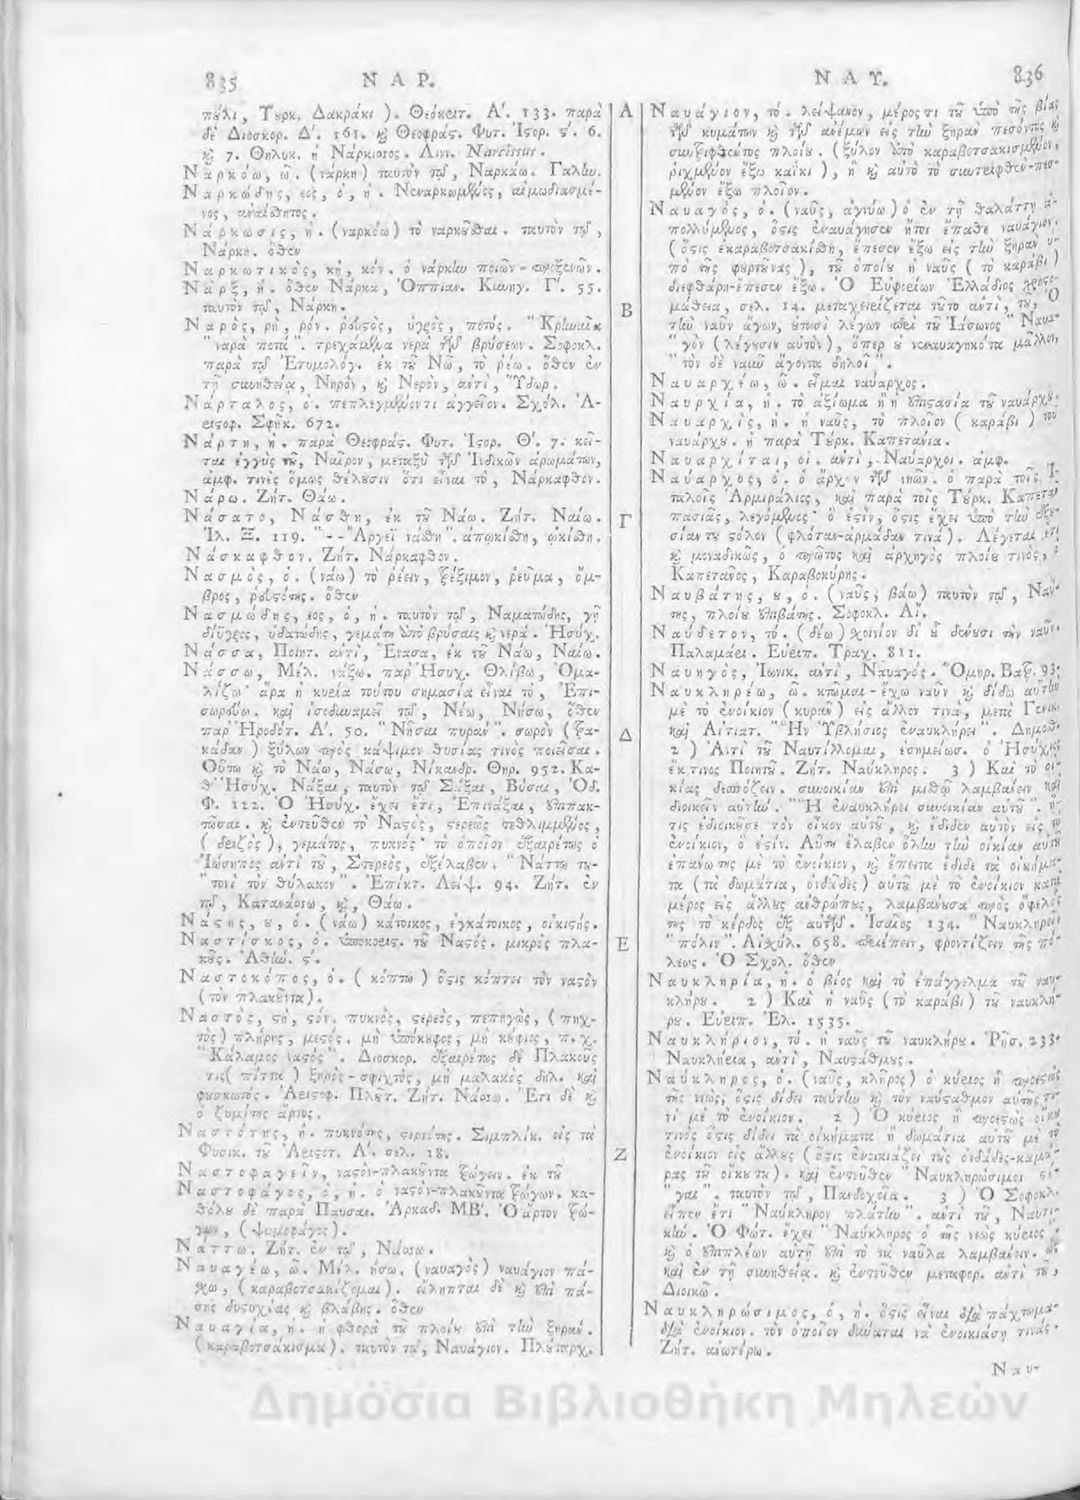 835 ΝΑΡ.
πύλι, Τουρκ. Δακράκι ). Θεόκριτ. Α'. 133. παρὰ
δὲ Διοσκορ. Δ'. 161. καὶ Θεοφράς. Φυτ. Ἱςορ. ς'. 6.
καὶ 7. Θηλυκ. ἡ Νάρκισσος. Λινν. Narcissus.
Ναρκόω, ῶ. (νάρκη) ταυτὸν τῷ, Ναρκάω. Γαλην.
Ναρκώδης, εος, ὁ, ἡ. Νεναρκωμένος, αἱμωδιασμέ-
νος, ἀναίσθητος.
Νάρκωσις, ἡ. (ναρκόω) τὸ ναρκοῦσθαι. ταυτὸν τῷ,
Νάρκη. ὅθεν
Ναρκωτικὸς, κὴ, κόν. ὁ νάρκην ποιῶν - προξενῶν.
Νάρξ, ἡ. ὅθεν Νάρκα, Ὀππιαν. Κυνηγ. Γ'. 55.
ταυτὸν τῷ, Νάρκη.
Ναρὸς, ρὴ, ρόν. ῥυςὸς, ὑγρὸς, ποτός.
" ναρὰ ποτὰ ". τρεχάμενα νερὰ τῶν βρύσεων. Σοφοκλ.
παρὰ τῷ Ἐτυμολόγ. ἐκ τοῦ Νῶ, τὸ ῥέω. ὅθεν ἐν
τῇ συνηθείᾳ, Νηρὸν, καὶ Νερὸν, ἀντὶ, Ὕδωρ.
Νάρταλος, ὁ. πεπλεγμένοντι ἀγγεῖον. Σχόλ. Ἀ-
ριςοφ. Σφηκ. 672.
Νάρτη, ἡ. παρὰ Θεοφράς. Φυτ. Ἱςορ. Θ'. 7. κεῖ-
ται ἐγγὺς τοῦ, Ναῖρον, μεταξὺ τῶν Ἰνδικῶν ἀρωμάτων,
ἀμφ. τινὲς ὅμως θέλουσιν ὅτι εἶναι τὸ, Νάρκαφθον.
Νάρω. Ζήτ. Θάω.
Νάσατο, Νάσθη, ἐκ τοῦ Νάω. Ζήτ. Ναίω.
Ἰλ. Ξ. 119. "--"Αργεϊ νάσθη". ἀπῳκίσθη, ᾠκίσθη.
Νάσκαφθον. Ζήτ. Νάρκαφθον.
Νασμὸς, ὁ. (νάω) τὸ ῥέειν, ῥέξιμον, ῥεῦμα, ὄμ-
βρος, ῥυςότης. ὅθεν
Νασμώδης, εος, ὁ, ἡ. ταυτὸν τῷ, Ναματώδης, γῆ
δίυγρος, ὑδατώδης, γεμάτη ἀπὸ βρύσαις καὶ νερά. Ἡσύχ.
Νάσσα, Ποιητ. ἀντὶ, Ἔνασα, ἐκ τοῦ Νάω, Ναίω.
Νάσσω, Μέλ. νάξω. παρ' Ἡσυχ. Θλίβω, Ὁμα-
λίζω· ἄρα ἡ κυρία τούτου σημασία εἶναι τὸ, Ἐπι-
σωρεύω. καὶ ἰσοδυναμεῖ τῷ, Νέω, Νήσω, ὅθεν
παρ' Ἡροδότ. Α'. 50. "Νήσαι πυράν". σωρὸν (
καδαν ) ξύλων πρὸς κάψιμον θυσίας τινὸς ποιεῖσαι.
Οὕτω καὶ τὸ Νάω, Νάσω, Νίκανδρ. Θηρ. 952. Κα-
θ' Ἡσύχ. Νάξαι, ταυτὸν τῷ Σάξαι, Βύσαι, Ὀδ.
Φ. 122. Ὁ Ἡσύχ. ἔχει ἔτι, Ἐπινάξαι,
καὶ ἐντεῦθεν τὸ Ναςὸς, ςερεῶς τεθλιμμένος,
γεμάτος, πυκνός· τὸ ὁποῖον ἐξαιρέτως ὁ
Ἰώσηπος ἀντὶ τοῦ, Στερεὸς, ἐξέλαβεν. "Νάττω του-
"τονὶ τὸν θύλακον". Ἐπίκτ. 94. Ζήτ. ἐν
τῷ, Κατανάσσω, καὶ, Θάω.
Νάςης, ου, ὁ. (νάω) κάτοικος, ἐγκάτοικος, οἰκιςής.
Ναστίσκος, ὁ. ὑποκορις. τοῦ Ναςός. μικρὸς πλα-
κοῦς. Ἀθήν. ς'.
Ναστοκόπος, ὁ. ( κόπτω ) ὅςις κόπτει τὸν ναςὸν
(τὸν πλακοῦντα).
Ναστὸς, ςὴ, ςόν. πυκνὸς, ςερεὸς, πεπηγὼς, (πηχ-
τὸς) πλήρης, μεςὸς. μὴ ὑπόκουφος, μὴ κούφιος, π. χ.
"Κάλαμος ναςὸς". Διοσκορ. ἐξαιρέτως δὲ Πλακοῦς
τις( πίττα ) ξηρὸς - σφιχτὸς, μὴ μαλακὸς δηλ. καὶ
φουσκωτός. Ἀριςοφ. Πλούτ. Ζήτ. Νάσσω. Ἔτι δὲ καὶ
ὁ ζυμίτης ἄρτος.
Ναστότης, ἡ. πυκνότης, ςερεότης. Σιμπλίκ. εἰς τὰ
Φυσικ. τοῦ Ἀριςοτ. Α'. σελ. 18.
Ναστοφαγεῖν, ναςὸν-πλακοῦντα τρώγειν. ἐκ τοῦ
Ναστοφάγος, ὁ, ἡ. ὁ ναςὸν-πλακοῦντα τρώγων. κα-
θόλου δὲ παρὰ Παυσαν. Ἀρκαδ. ΜΒ'. Ὁ ἄρτον τρώ-
γων, (ψωμοφάγος).
Νάττω. Ζήτ. ἐν τῷ, Νάσσω.
Ναυαγέω, ῶ. Μέλ. ήσω. (ναυαγὸς) ναυάγιον πά-
σχω, ( καραβοτσακίζομαι). εἴληπται δὲ καὶ ἐπὶ πά-
σης δυςυχίας καὶ βλάβης. ὅθεν
Ναυαγία, ἡ. ἡ φθορὰ τοῦ πλοίου ἐπὶ τὴν ξηράν.
(καραβοτσάκισμα). ταυτὸν τῷ, Ναυάγιον. Πλούταρχ.
Α
Β
Γ
Δ
Ε
Ζ
ΝΑΥ. 836
Ναυάγιον, τό. λείψανον, μέρος τι τοῦ ὑπὸ τῆς βίας
τῶν κυμάτων καὶ τῶν ἀνέμων εἰς τὴν ξηρὰν πεσόντος καὶ
συντριφθέντος πλοίου. (ξύλον ἀπὸ καραβοτσακισμένον,
ριχμένον ἔξω καΐκι ), ἢ καὶ αὐτὸ τὸ συντριφθὲν-πεσ-
μένον ἔξω πλοῖον.
Ναυαγὸς, ὁ. (ναῦς, ἀγνύω) ὁ ἐν τῇ θαλάττῃ ἀ-
πολλύμενος, ὅςις ἐναυάγησεν ἤτοι ἔπαθε ναυάγιον.
(ὅςις ἐκαραβοτσακίσθη, ἔπεσεν ἔξω εἰς τὴν ξηρὰν ἀ-
πὸ τῆς φουρτούνας ), τοῦ ὁποίου ἡ ναῦς ( τὸ καράβι )
διεφθάρη-ἔπεσεν ἔξω. Ὁ Εὐφρείων Ἑλλάδιος χρηςο-
μάθεια, σελ. 14. μεταχειρίζεται τοῦτο ἀντὶ, τοῦ, Ὁ
τὴν ναῦν ἄγων, οὑτωσὶ λέγων περὶ τοῦ Ἰάσωνος "Ναυα-
"γὸν (λέγουσιν αὐτὸν), ὅπερ οὐ νεναυαγηκότα μᾶλλον,
"τὸν δὲ ναῦν ἄγοντα δηλοῖ".
Ναυαρχέω, ῶ. εἶμαι ναύαρχος.
Ναυαρχία, ἡ. τὸ ἀξίωμα ἢ ἡ ἐπιςασία τοῦ ναυάρχου.
Ναυαρχὶς, ἡ. ἡ ναῦς, τὸ πλοῖον ( καράβι ) τοῦ
ναυάρχου. ἡ παρὰ Τούρκ. Καπετανία.
Ναυαρχίται, οἱ. ἀντὶ, Ναύαρχοι. ἀμφ.
Ναύαρχος, ὁ. ὁ ἄρχων τῶν νηῶν. ὁ παρὰ τοῖς Ἰ-
ταλοῖς Ἀρμιράλιος, καὶ παρὰ τοῖς Τούρκ. Καπετὰν
πασίας, λεγόμενος· ὅ ἐςὶν, ὅςις ἔχει ὑπὸ τὴν ἐξου-
σίαν του ςόλον (φλόταν-ἀρμάδαν τινά). Λέγεται ἔτι
καὶ μοναδικῶς, ὁ πρῶτος καὶ ἀρχηγὸς πλοίου τινὸς, ὁ
Καπετάνος, Καραβοκύρης.
Ναυβάτης, ου, ὁ. (ναῦς, βάω) ταυτὸν τῷ, Ναύ-
της, πλοίου ἐπιβάτης. Σοφοκλ. Αἴ.
Ναύδετον, τό. (δέω) σχοινίον δι' οὗ δένουσι τὴν ναῦν.
Παλαμάρι. Εὐριπ. Τρωχ. 811.
Ναυηγὸς, Ἰωνικ. ἀντὶ, Ναυαγός. Ὅμηρ. Βατρ. 93.
Ναυκληρέω, ῶ. κτῶμαι - ἔχω ναῦν καὶ δίδω αὐτὴν
μὲ τὸ ἐνοίκιον (κυρᾶν) εἰς ἄλλον τινὰ, μετὰ Γενικ.
καὶ Αἰτιατ. "Ἣν Ὑβλήσιος ἐναυκλήρει". Δημοσθ.
2 ) Ἀντὶ τοῦ Ναυτίλλομαι, ἐσημείωσ. ὁ Ἡσύχ.
ἔκ τινος Ποιητοῦ. Ζήτ. Ναύκληρος. 3 ) Καὶ τὸ οἰ-
κίας δεσπόζειν. συνοικίαν ἐπὶ μισθῷ λαμβάνειν καὶ
διοικεῖν αὐτήν. ""Ἡ ἐναυκλήρει συνοικίαν αὐτοῦ". ὅς
τις ἐδιοικοῦσε τὸν οἶκον αὐτοῦ, καὶ ἔδιδεν αὐτὸν εἰς τὸ
ἐνοίκιον, ὅ ἐςίν. Αὕτη ἔλαβεν ὅλην τὴν οἰκίαν αὐτοῦ
ἐπάνω της μὲ τὸ ἐνοίκιον, καὶ ἔπειτα ἔδιδε τὰ οἰκήμα-
τα (τὰ δωμάτια, ὀνδάδες) αὐτοῦ μὲ τὸ ἐνοίκιον κατὰ
μέρος εἰς ἄλλους ἀνθρώπους, λαμβάνουσα πρὸς ὄφελός
της τὸ κέρδος ἐξ αὐτῶν. Ἰσαῖος 134. "Ναυκληρεῖν
"πόλιν". Αἰσχύλ. 658. φροντίζειν τῆς πό-
λεως. Ὁ Σχολ. ὅθεν
Ναυκληρία, ἡ. ὁ βίος καὶ τὸ ἐπάγγελμα τοῦ ναυ-
κλήρου. 2 ) Καὶ ἡ ναῦς (τὸ καράβι) τοῦ ναυκλή-
ρου. Εὐριπ. Ἑλ. 1535.
Ναυκλήριον, τό. ἡ ναῦς τοῦ ναυκλήρου. Ῥῆσ. 233.
Ναυκλήρια, ἀντὶ, Ναυςάθμους.
Ναύκληρος, ὁ. (ναῦς, κλῆρος) ὁ κύριος ἢ προεςὼς
τῆς νεὼς, ὅςις δίδει ταύτην καὶ τὸν ναύςαθμον αὐτῆς τι-
νὶ μὲ τὸ ἐνοίκιον. 2 ) Ὁ κύριος ἢ προεςὼς οἴκου
τινὸς ὅςις δίδει τὰ οἰκήματα ἢ δωμάτια αὐτοῦ μὲ τὸ
ἐνοίκιον εἰς ἄλλους (ὅςις ἐνοικιάζει τοὺς ὀνδάδες-καμά-
ρας τοῦ οἴκου τα). καὶ ἐντεῦθεν "Ναυκληρώσιμοι ςέ-
"γαι". ταυτὸν τῷ, Πανδοχεῖα. 3 ) Ὁ Σοφοκλ.
εἶπεν ἔτι "Ναύκληρον πλάτην". ἀντὶ τοῦ, Ναυτι-
κήν. Ὁ Φώτ. ἔχει "Ναύκληρος ὁ τῆς νεὼς κύριος
καὶ ὁ ἐπιπλέων αὐτῇ ἐπὶ τὸ τὰ ναῦλα λαμβάνειν. ὡς
καὶ ἐν τῇ συνηθείᾳ. καὶ ἐντεῦθεν μεταφορ. ἀντὶ τοῦ,
Διοικῶ.
Ναυκληρώσιμος, ὁ, ἡ. ὅςις εἶναι διὰ πάχτωμα-
διὰ ἐνοίκιον. τὸν ὁποῖον δύναται νὰ ἐνοικιάσῃ τινάς.
Ζήτ. ἀνωτέρω.
Ναυ-
Δημόσια Βιβλιοθήκη Μηλεών